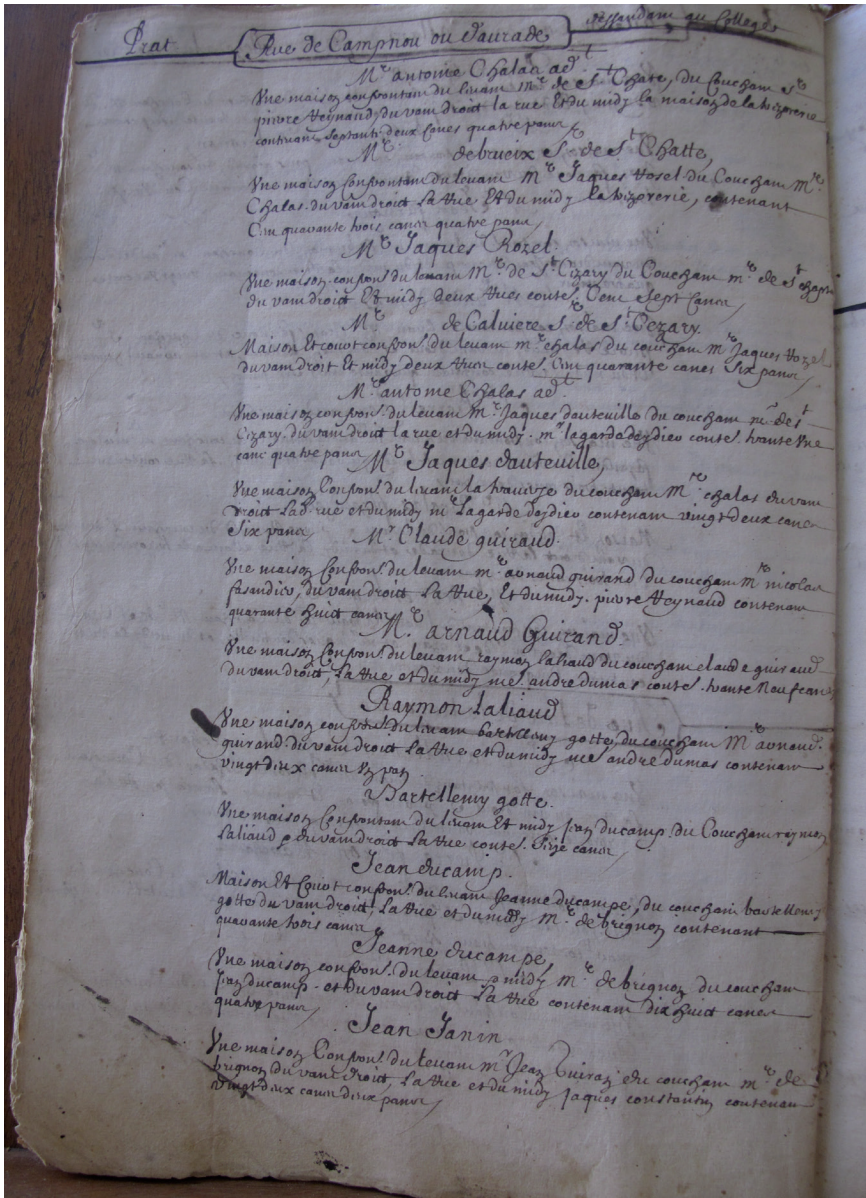 Prat Rue de Campnou ou daurade dessandam au College
Mr antoine Chalas adt
Une maison confrontam du levam mr de St Chate, du Coucham Sr
pierre Reynaud, du vam droit la rue Et du midy la maison de la
contenam septante deux canes quatre pans
Mr debrueix Sr de St Chatte,
Une maison Confrontam du levam mr Jaques Rosel du Coucham Mr
Chalas du vam droit La Rue Et du midy, contenant
Cen quarante trois canes quatre pans
Mr Jaques Rozel
Une maison confront. du levam Mr de St Cizary du Coucham mr de St
du vam droit Et midy deux Rues conte. Cent Sept Canes
Mr de Calviere Sr de St Cezary.
Maison Et couvert confront. du levam mr chalas du coucham Mr Jaques Rozel
du vam droit Et midy deux Rues conte. Cen quarante canes Six pans
Mr antoine Chalas adt
Une maison confront. du levam Mr Jaques dauteville du coucham mr de St
Cizary, du vam droit la rue et du midy. mr lagarda deydieu conte. trante Une
cane quatre pans
Mr Jaques dauteville,
Une maison Confront. du levam la traverse du coucham Mr chalas du vam
droit La rue et du midy mr Lagarde deydieu contenam vingt deux canes
Six pans
Mr Claude guiraud.
Une maison Confront. du levam mr arnaud guirand du coucham Mr nicolas
du vam droit La Rue, Et du midy. pierre Reynaud contenam
quarante huict canes
Mr arnaud Guirand.
Une maison Confront. du levam raymon laliaud du coucham claude guiraud
du vam droit, La Rue et du midy me andre dumas conte. trante Neuf canes
Raymon Laliaud
Une maison confront du levam bartellemy gotte, du coucham Mr arnaud.
guirand du vam droit La Rue et du midy me andre dumas contenam
vingt deux canes Un pan
Bartellemy gotte.
Une maison Confrontam du levam Et midy jean ducamp. du Coucham raymon
Laliaud, du vam droit La Rue conte. Seize canes
Jean ducamp.
Maison Et Couvert confront. du levam Jeanne ducampe, du coucham bartellemy
gotte du vam droit, La Rue et du midy Mr de brignon contenant
quarante trois canes
Jeanne ducampe,
Une maison confront. du levam, midy mr de brignon du coucham
jean ducamp. et du vam droit La Rue contenam dix huict canes
quatre pans
Jean Janin
Une maison Confront. du levam mr Jean Guiran du coucham mr de
brignon du vam droit, La Rue et du midy jaques constantin contenam
vingt deux canes deux pans